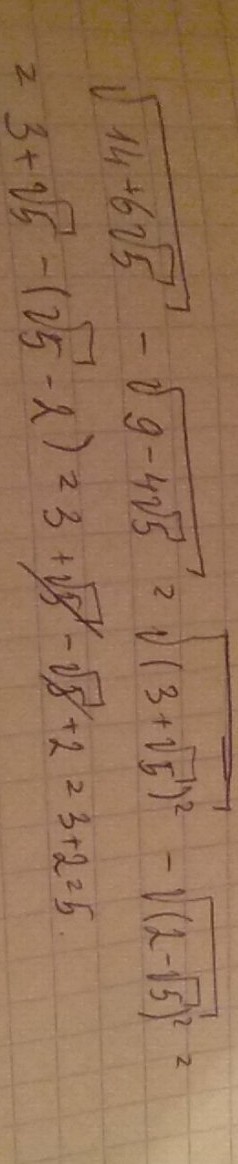 √(14+6√5) - √(9-4√5) = √((3+√5)²) - √((2-√5)²) =
= 3+√5 - (√5-2) = 3+√5 - √5 + 2 = 3+2=5.